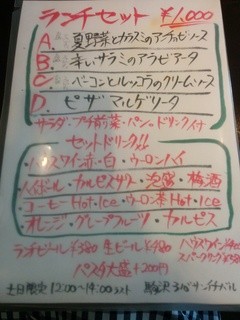 ランチセット ¥1,000
A. 夏野菜とカラスミのアンチョビソース
B. 辛いサラミのアラビアータ
C. ベーコンとルッコラのクリームソース
D. ピザマルゲリータ
サラダ・プチ前菜・パン・ドリンク付
セットドリンク!!
・ハウスワイン赤・白・ウーロンハイ
ハイボール・カルピスサワー・泡盛・梅酒
コーヒーHot・Ice・ウーロン茶Hot・Ice
オレンジ・グレープフルーツ・カルピス
ランチビール¥380 生ビール¥480
ハウスワイン
スパークリング
パスタ大盛+200円
土日限定 12:00~14:00ラスト